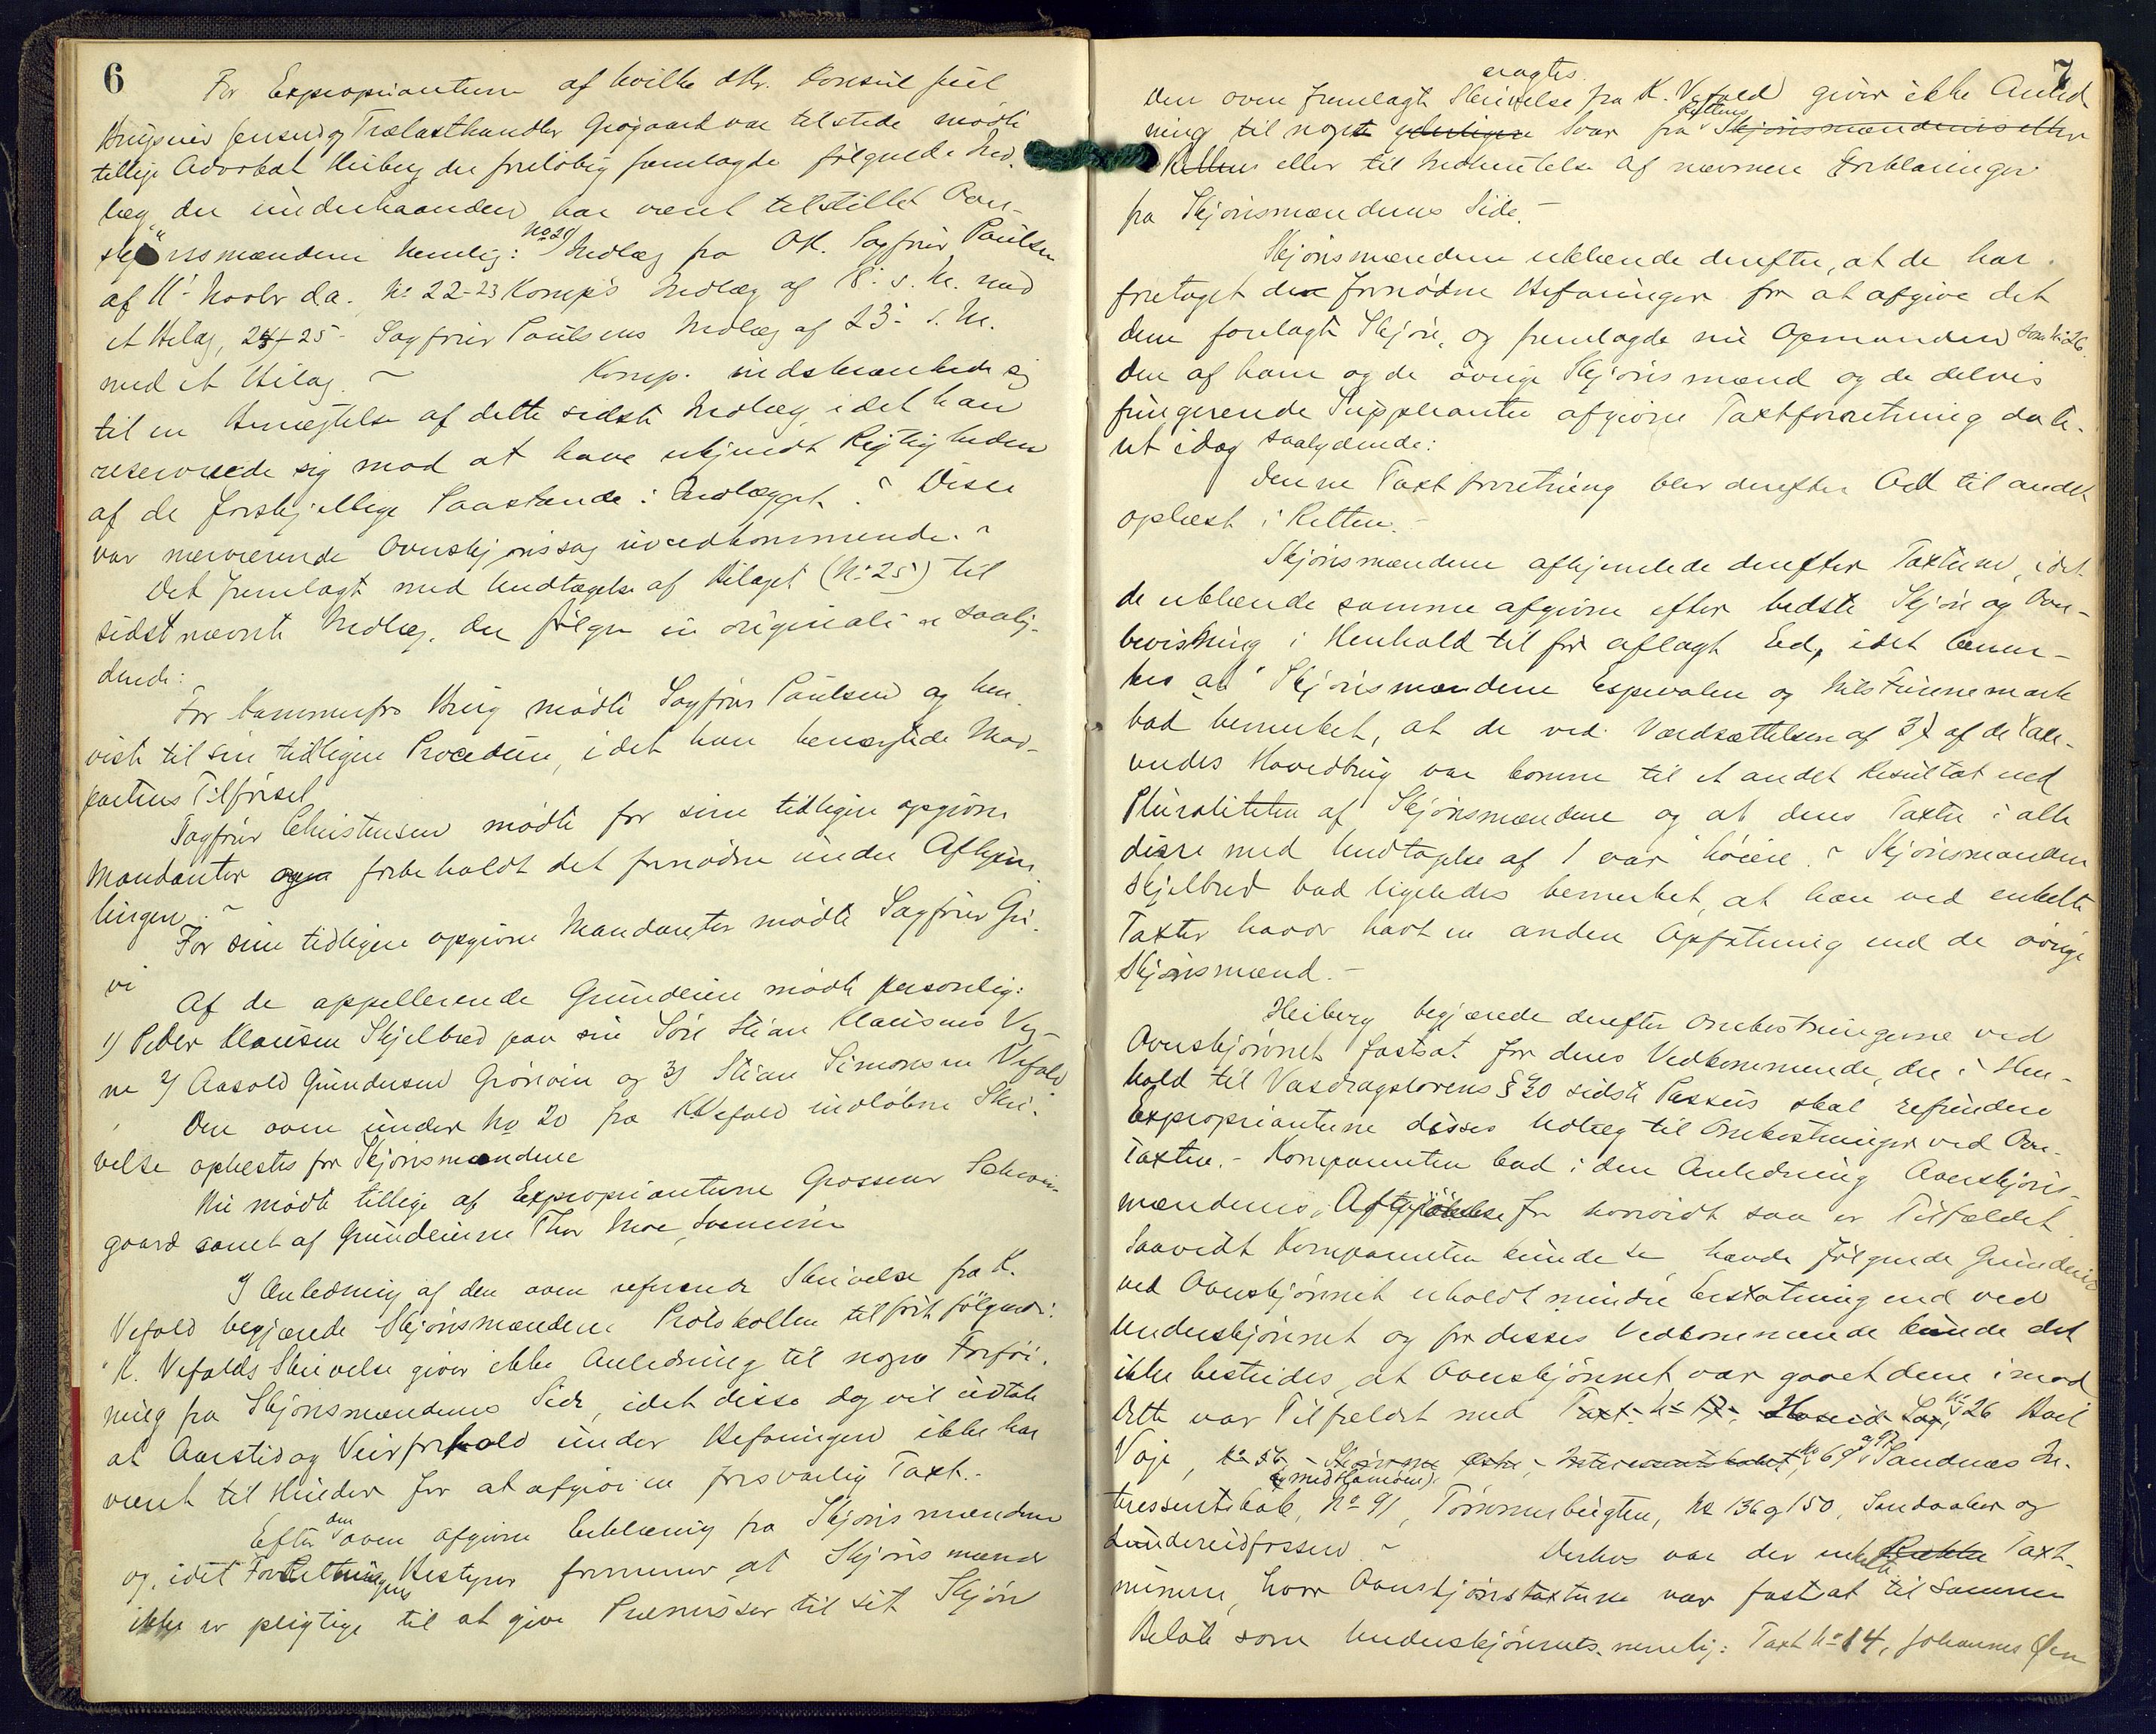 6
For Exproprianterne af hvilke dHr. Konsul Juel
Brugseier Jensen og Trælasthandler Grøgaard var tilstede mødte
tillige Advokat Heiberg der foreløbig fremlagde følgende Ind-
læg, der underhaanden har været tilstillet Over-
skjønsmændene nemlig: No 21) Indlæg fra OR. Sagfører Paulsen
af 11' Novbr d.a. No 22-23 Komp's Indlæg af 18' s. M. med
et Bilag, 24+25 - Sagfører Paulsens Indlæg af 23' s. M.
med et Bilag. ~ Komp. indskrænkede sig
til en Benægtelse af dette sidste Indlæg, idet han
reserverede sig mod at have erkjendt Rigtigheden
af de forskjellige Paastande i Indlægget. ~ Disse
var nærværende Overskjønssag uvedkommende. ~
Det fremlagte med Undtagelse af Bilaget (No 25) til
sidstnævnte Indlæg, der følger in originali er saaly-
dende:
For Kammerfro Krug mødte Sagfører Paulsen og hen-
viste til sin tidligere Procedure, idet han benægtede Mod-
partens Tilførsel
Sagfører Christensen mødte for sine tidligere opgivne
Mandanter og forbeholdt det fornødne under Afhjem-
lingen. ~
For sine tidligere opgivne Mandanter mødte Sagfører Gri-
vi
Af de appellerende Grundeiere mødte personlig:
1) Peder Klausen Skjelbred paa sin Søn Stian Klausens Veg-
ne 2) Aasold Gundersen Grøsvin og 3) Stian Simonsen Vefald
Den oven under No 20 fra K. Vefald indløbne Skri-
velse oplæstes for Skjønsmændene
Nu mødte tillige af Exproprianterne Grosserer Schwei-
gaard samt af Grundeierne Thor Moe,
I Anledning af den oven refererede Skrivelse fra K.
Vefald begjærede Skjønsmændene Protokollen tilført følgende:
"K. Vefalds Skrivelse giver ikke Anledning til nogen Tilfø-
ning fra Skjønsmændenes Side, idet disse dog vil udtale
at Aarstid og Veirforhold under Befaringen ikke har
været til Hinder for at afgive en forsvarlig Taxt. -
Efter den oven afgivne Erklæring fra Skjønsmændene
og, idet Forretningens Bestyrer formener, at Skjønsmænd
ikke er pligtige til at give Præmisser til sit Skjøn
7
eragtes
den oven fremlagte Skrivelse fra K. Vefald giver ikke Anled
ning til noget yderligere Svar fra Rettens Skjønsmændenes eller
Rettens eller til Indhentelse af nærmere Forklaringer
fra Skjønsmændenes Side. -
Skjønsmændene erklærede derefter, at de har
foretaget de fornødne Befaringer for at afgive det
dem forelagte Skjøn, og fremlagde nu Opmanden som No 26.
den af ham og de øvrige Skjønsmænd og de delvis
fungerende Suppleanter afgivne Taxtforretning date-
ret idag saalydende:
Denne Taxtforretning blev derefter Ord til andet
oplæst i Retten. -
Skjønsmændene afhjemlede derefter Taxterne, idet
de erklærede samme afgivne efter bedste Skjøn og Over-
bevisning i Henhold til før aflagt Ed, idet bemær-
kes at Skjønsmændene Espevalen og Nils Tinnemark
bad bemerket, at de ved Værdsættelsen af 37 af de Paa-
vedes Hovedbrug var komne til et andet Resultat end
Pluraliteten af Skjønsmændene og at deres Taxter i alle
disse med Undtagelse af 1 var høiere. ~ Skjønsmanden
Skjelbred bad ligeledes bemerket, at han ved enkelte
Taxter havde havt en anden Opfatning end de øvrige
Skjønsmænd. -
Heiberg begjærede derefter Omkostningerne ved
Overskjønnet fastsat for deres Vedkommende, der i Hen-
hold til Vasdragslovens § 30 sidste Passus skal refundere
Exproprianterne disses Udlæg til Omkostninger ved Over-
taxten. - Komparenten bad i den Anledning Overskjøns-
mændenes Afgjørelse for hvorvidt saa er Tilfældet
Saavidt Komparenten kunde se havde følgende Grundeiere
ved Overskjønnet erholdt mindre Erstatning end ved
Underskjønnet og for disses Vedkommende kunde det
ikke bestrides, at Overskjønnet var gaaet dem imod
Dette var Tilfældet med Taxt No 17, Hoseid Sag, No 26
Voje, No 56, Interessentskabet, No 69 og 97 Sandnes In-
teressentskab (med Hamren), No 91, Tømmerbugten, No 136 og 150, Sandaaker og
Lundereidfossen. ~ Derhos var der enkelte Taxt-
numre, hvor Overskjønstaxterne var fastsat til samme
Beløb som Underskjønnets nemlig: Taxt No 14, Johannes Øen